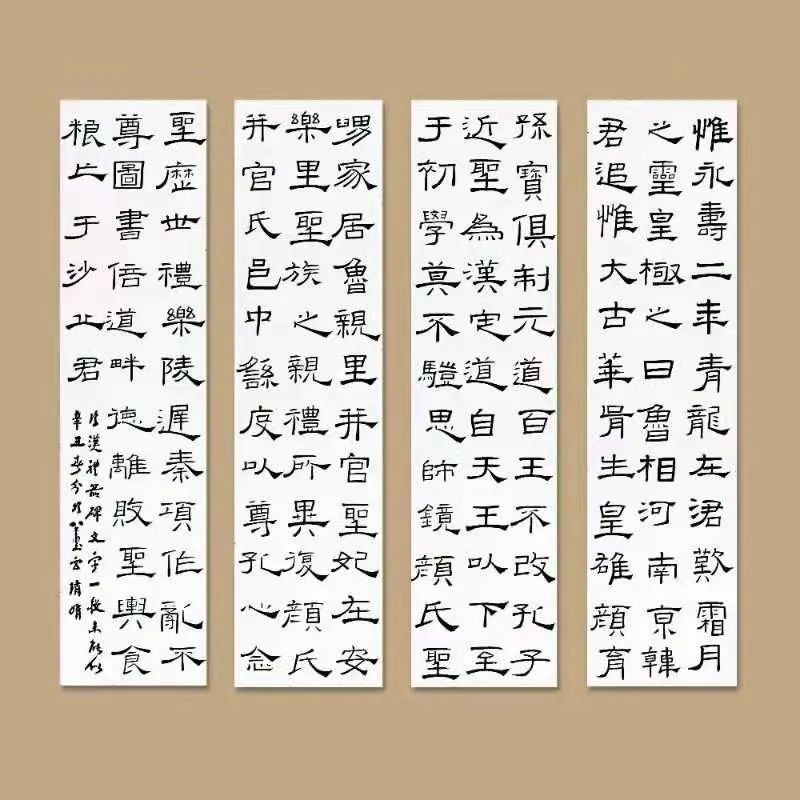 惟永壽二年青龍在涒歎霜月
之靈皇極之日魯相河南京韓
君追惟大古華胥生皇雄顏育
孫寶俱制元道百王不改孔子
近聖為漢定道自天王以下至
于初學莫不驩思師鏡顏氏聖
舅家居魯親里并官聖妃在安
樂里聖族之親禮所異復顏氏
并官氏邑中繇发以尊孔心念
聖歷世禮樂陵遲秦項作亂不
尊圖書倍道畔德離敗聖輿食
粮亡于沙丘君
臨漢禮器碑文字一段未能似
辛丑春分